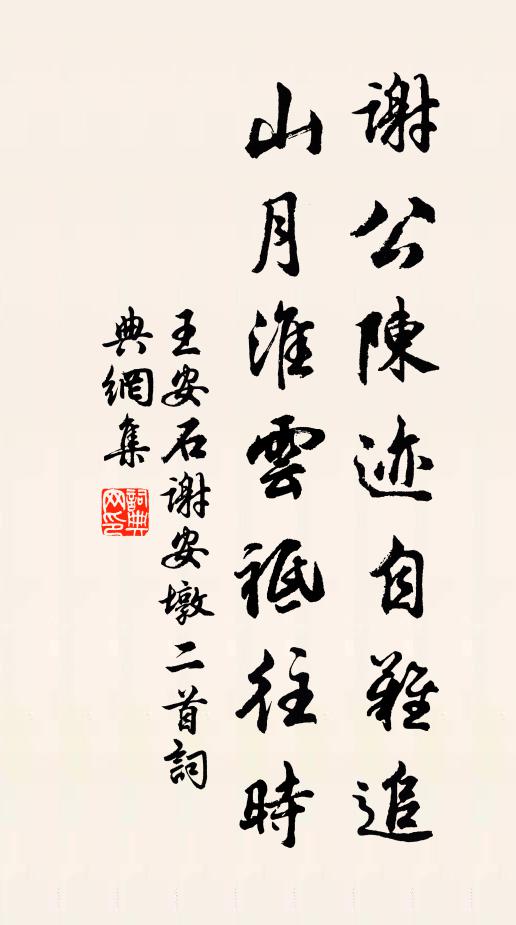 謝公陳迹自難追
山月淮雲祗往時
王安石謝安墩二首詞
典網集
詞典網印